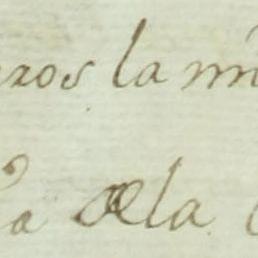 ros la mi
a dela